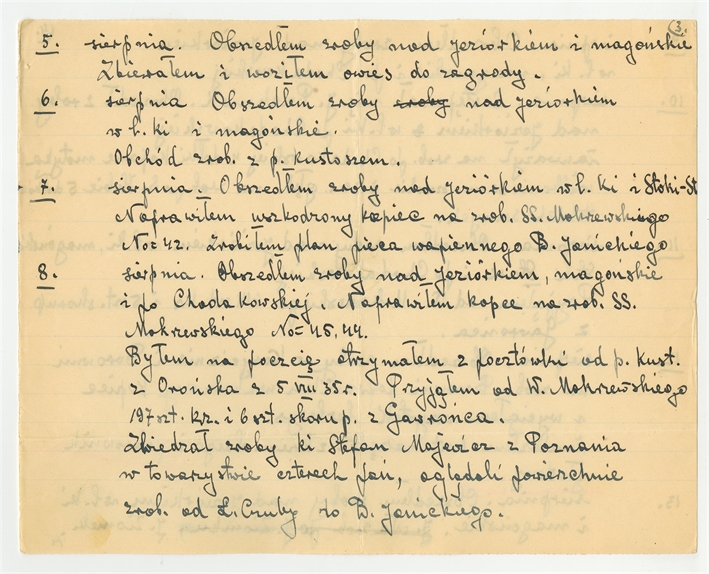 3.
5. sierpnia. Obszedłem zroby nad jeziórkiem i magońskie
Zbierałem i woziłem owies do zagrody.
6. sierpnia Obszedłem zroby zroby nad jeziorkiem
w l. ki i magońskie.
Obchód zrob. z p. kustoszem.
7. sierpnia. Obszedłem zroby nad jeziórkiem w l. ki i Stoki-St
Naprawiłem uszkodzony kopiec na zrob. SS. Mokrzewskiego
No= 42. Zrobiłem plan pieca wapiennego B. Janickiego
8. sierpnia. Obszedłem zroby nad jeziórkiem, magońskie
i po Chodakowskiej. Naprawiłem kopce na zrob. SS.
Mokrzewskiego No= 45, 44.
Byłem na poczcie otrzymałem 2 pocztówki od p. kust.
z Orońska z 5 VIII 35 r. Przyjąłem od W. Mokrzewskiego
197 szt. kz. i 6 szt. skorup. z Gawrońca.
Zwiedzał zroby ki Stefan Majewicz z Poznania
w towarzystwie czterech pań, oglądali powierzchnie
zrob. od Ł. Czuby B. Janickiego.